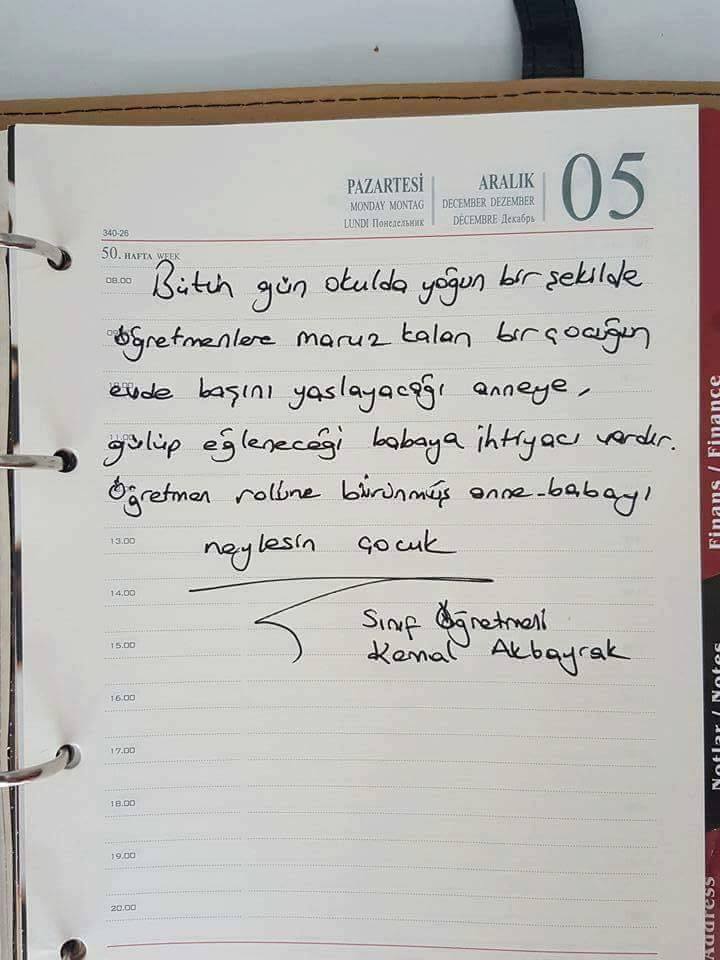 PAZARTESİ
MONDAY MONTAG
LUNDI Понедельник
ARALIK
DECEMBER DEZEMBER
DÉCEMBRE Декабрь
05
340-26
50. HAFTA WEEK
08.00
Bütün gün okulda yoğun bir şekilde
öğretmenlere maruz kalan bir çocuğun
evde başını yaslayacağı anneye,
gülüp eğleneceği babaya ihtiyacı vardır.
Öğretmen rolüne bürünmüş anne-babayı
13.00
neylesin çocuk
14.00
Sınıf Öğretmeni
15.00
Kemal Akbayrak
16.00
17.00
18.00
19.00
20.00
Finans / Finance
Notlar / Notes
Address